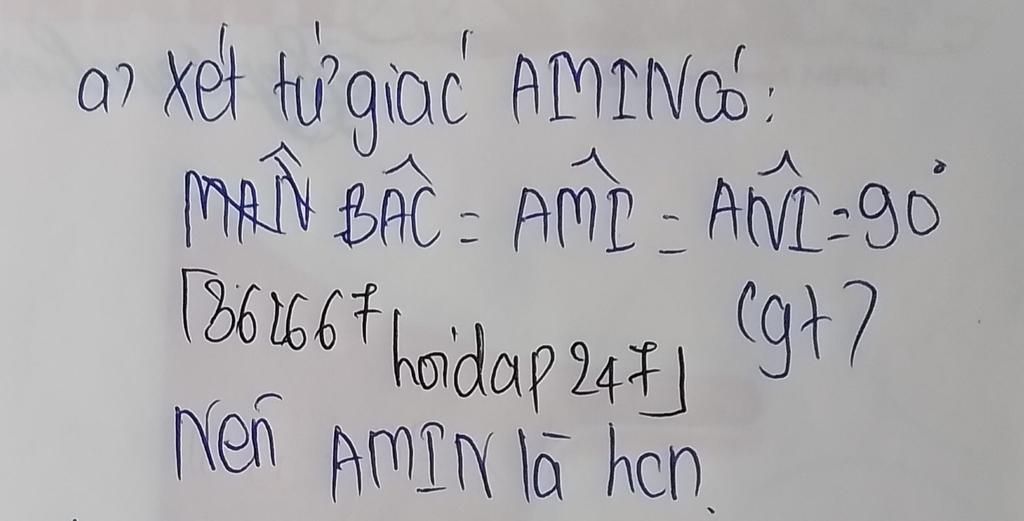 a) Xét tứ giác AMIN có:
BÂC = AM̂I = AN̂I = 90°
[362667 hoidap247] (gt)
Nên AMIN là hcn.